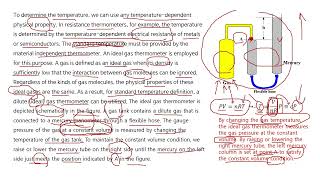 To determine the temperature, we can use any temperature-dependent
physical property. In resistance thermometers, for example, the temperature
is determined by the temperature-dependent electrical resistance of metals
or semiconductors. The standard temperature must be provided by the
material independent thermometer. An ideal gas thermometer is employed
for this purpose. A gas is defined as an ideal gas when its density is
sufficiently low that the interaction between gas molecules can be ignored.
Regardless of the kinds of gas molecules, the physical properties of these
ideal gases are the same. As a result, for standard temperature definition, a
dilute (ideal) gas thermometer can be utilized. The ideal gas thermometer is
depicted schematically in the figure. A gas tank contains a dilute gas that is
connected to a mercury manometer through a flexible hose. The gauge
pressure of the gas at a constant volume is measured by changing the
temperature of the gas tank. To maintain the constant volume condition, we
raise or lower the mercury tube on the right side until the mercury on the left
side just meets the position indicated by A in the figure.
Mercury
Flexible hose
By changing the gas temperature,
the ideal gas thermometer measures
the gas pressure at the constant
volume. By raising or lowering the
right mercury tube, the left mercury
column is set at point A to satisfy
the constant volume condition.